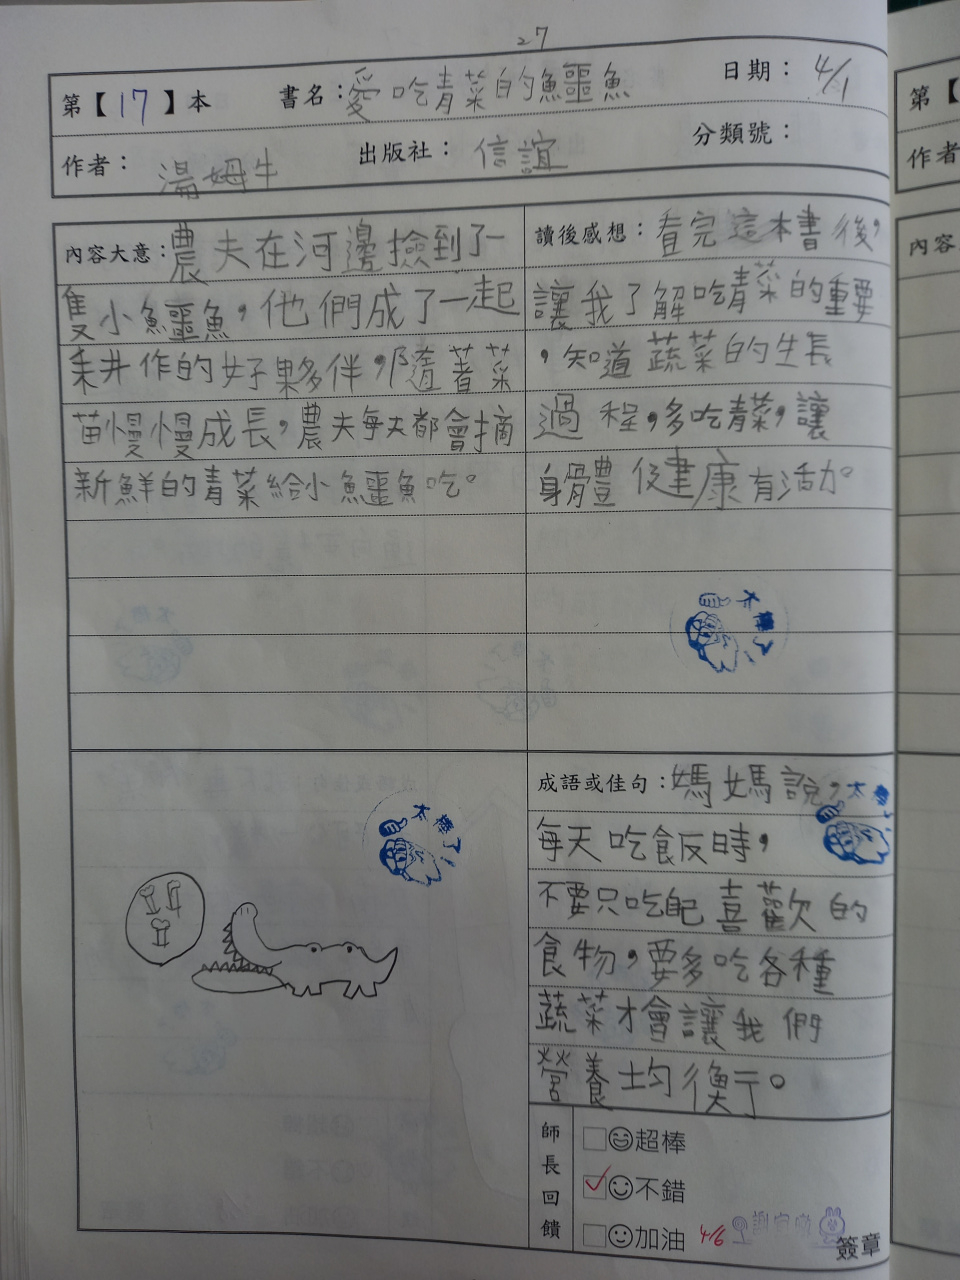 27
第【17】本 書名：愛吃青菜的鱷魚 日期：4/1
作者：湯姆牛 出版社：信誼 分類號：
內容大意：農夫在河邊撿到了一
隻小鱷魚，他們成了一起
耒井作的好夥伴，隨著菜
苗慢慢成長，農夫每天都會摘
新鮮的青菜給小鱷魚吃。
讀後感想：看完這本書後，
讓我了解吃青菜的重要
，知道蔬菜的生長
過程，多吃青菜，讓
身體健康有活力。
太棒了！
太棒了！
成語或佳句：媽媽說，
太棒了！
每天吃飯時，
不要只吃自己喜歡的
食物，要多吃各種
蔬菜才會讓我們
營養均衡。
師長回饋
超棒
不錯
加油 4/6
簽章
第【
作者
內容